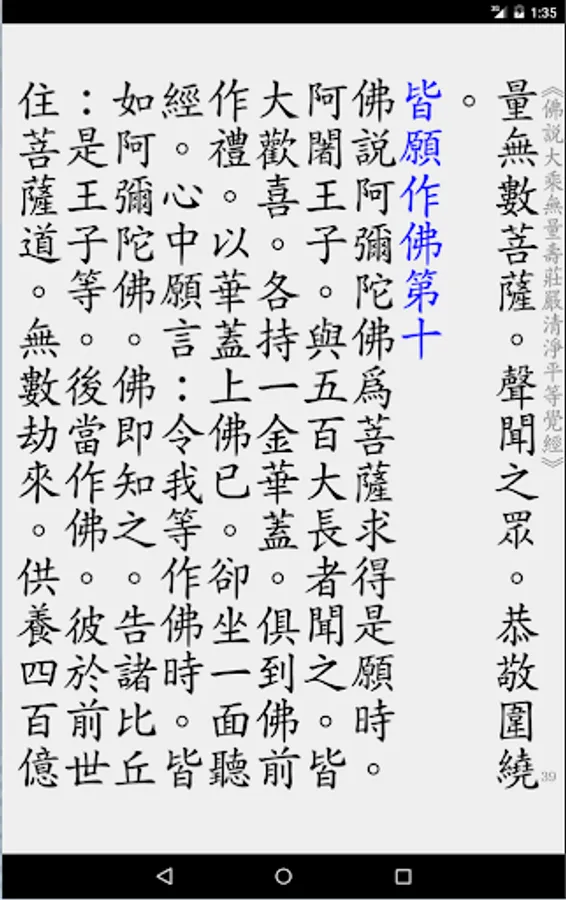 1:35
《佛說大乘無量壽莊嚴清淨平等覺經》
量無數菩薩。聲聞之眾。恭敬圍繞
。
皆願作佛第十
佛說阿彌陀佛為菩薩求得是願時。
阿闍王子。與五百大長者聞之。皆
大歡喜。各持一金華蓋。俱到佛前
作禮。以華蓋上佛已。卻坐一面聽
經。心中願言：令我等作佛時。皆
如阿彌陀佛。佛即知之。告諸比丘
：是王子等。後當作佛。彼於前世
住菩薩道。無數劫來。供養四百億
39